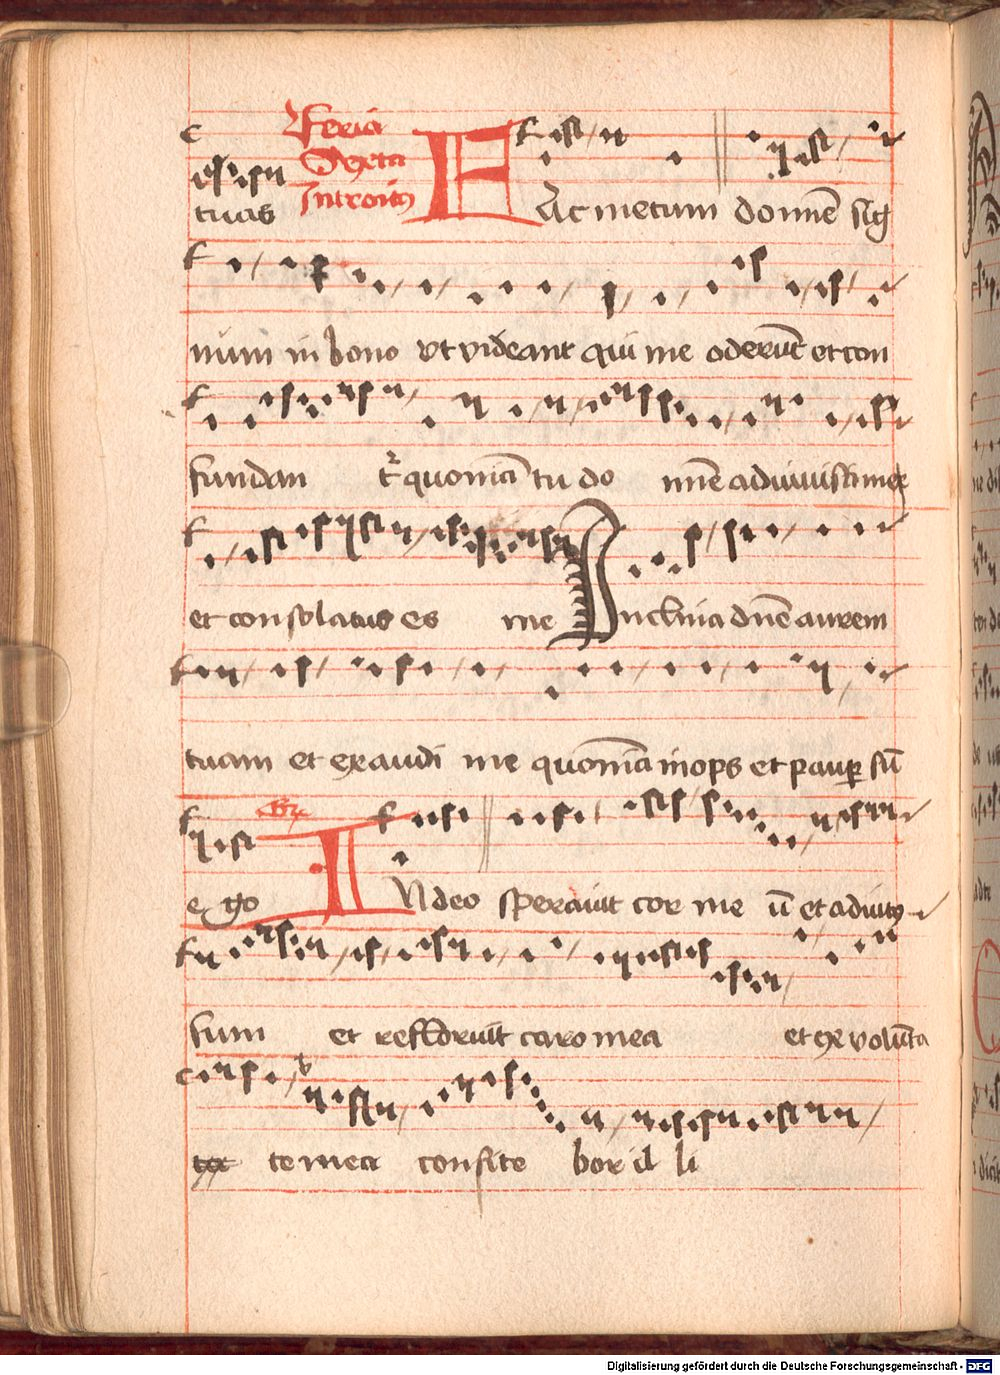 Feria
Sexta
tuas Introitus FAc mecum domine sig
num in bono vt videant qui me oderūt et con
fundan tr quoniā tu do mīe adiuuisti me
et consolatus es me Inclina dn̄e aurem
tuam et exaudi me quoniā inops et paup sū
ego INdeo sperauit cor me ū et adiut
sum et refloruit caro mea et ex volūta
te mea confite bor il li
Digitalisierung gefördert durch die Deutsche Forschungsgemeinschaft - DFG